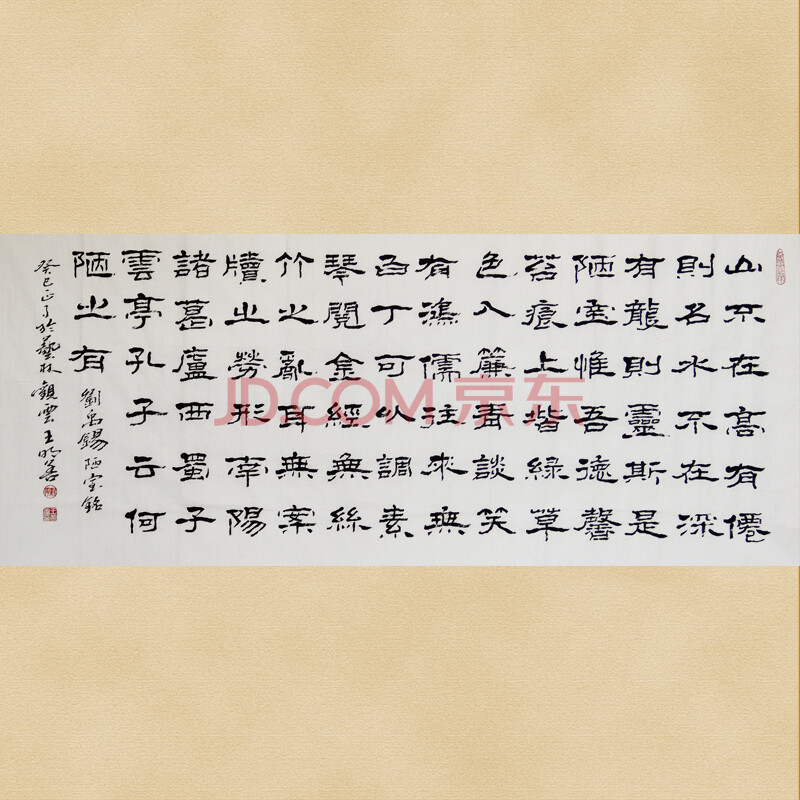 山不在高有僊
則名水不在深
有龍則靈斯是
陋室惟吾德馨
苔痕上堦綠草
色入簾青談笑
有鴻儒往來無
白丁可以調素
琴閱金經無絲
竹之亂耳無案
牘之勞形南陽
諸葛廬西蜀子
雲亭孔子云何
陋之有
劉禹錫陋室銘
癸巳於藝林觀雲王善
JD.COM 京东